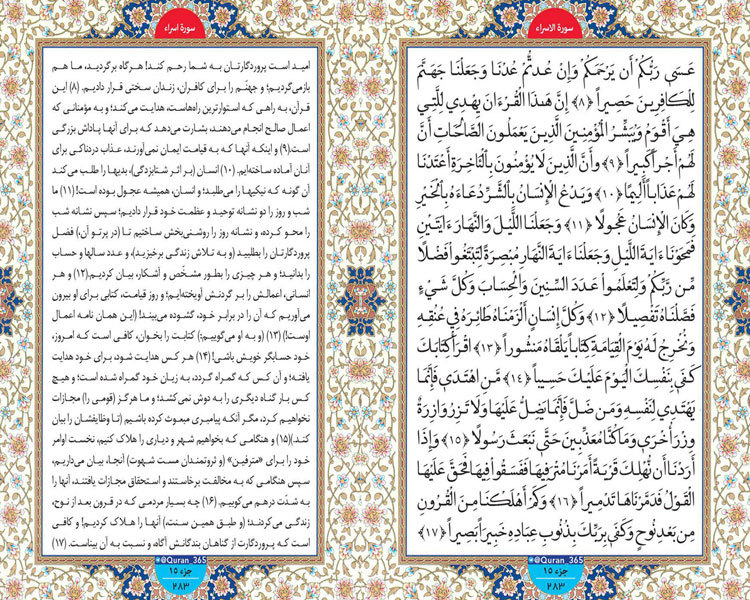 سورة الاسراء
عَسَىٰ رَبُّكُمْ أَن يَرْحَمَكُمْ وَإِنْ عُدتُّمْ عُدْنَا وَجَعَلْنَا جَهَنَّمَ
لِلْكَافِرِينَ حَصِيراً ﴿٨﴾ إِنَّ هَٰذَا الْقُرْءَانَ يَهْدِي لِلَّتِي
هِيَ أَقْوَمُ وَيُبَشِّرُ الْمُؤْمِنِينَ الَّذِينَ يَعْمَلُونَ الصَّالِحَاتِ أَنَّ
لَهُمْ أَجْراً كَبِيراً ﴿٩﴾ وَأَنَّ الَّذِينَ لَا يُؤْمِنُونَ بِالْآخِرَةِ أَعْتَدْنَا
لَهُمْ عَذَاباً أَلِيمًا ﴿١٠﴾ وَيَدْعُ الْإِنسَانُ بِالشَّرِّ دُعَاءَهُ بِالْخَيْرِ
وَكَانَ الْإِنسَانُ عَجُولًا ﴿١١﴾ وَجَعَلْنَا اللَّيْلَ وَالنَّهَارَ ءَايَتَيْنِ
فَمَحَوْنَا ءَايَةَ اللَّيْلِ وَجَعَلْنَا ءَايَةَ النَّهَارِ مُبْصِرَةً لِتَبْتَغُوا فَضْلًا
مِّن رَّبِّكُمْ وَلِتَعْلَمُوا عَدَدَ السِّنِينَ وَالْحِسَابَ وَكُلَّ شَيْءٍ
فَصَّلْنَاهُ تَفْصِيلًا ﴿١٢﴾ وَكُلَّ إِنسَانٍ أَلْزَمْنَاهُ طَائِرَهُ فِي عُنُقِهِ
وَنُخْرِجُ لَهُ يَوْمَ الْقِيَامَةِ كِتَاباً يَلْقَاهُ مَنْشُوراً ﴿١٣﴾ اقْرَأْ كِتَابَكَ
كَفَىٰ بِنَفْسِكَ الْيَوْمَ عَلَيْكَ حَسِيباً ﴿١٤﴾ مَّنِ اهْتَدَىٰ فَإِنَّمَا
يَهْتَدِي لِنَفْسِهِ وَمَن ضَلَّ فَإِنَّمَا يَضِلُّ عَلَيْهَا وَلَا تَزِرُ وَازِرَةٌ
وِزْرَ أُخْرَىٰ وَمَا كُنَّا مُعَذِّبِينَ حَتَّىٰ نَبْعَثَ رَسُولًا ﴿١٥﴾ وَإِذَا
أَرَدْنَا أَن نُّهْلِكَ قَرْيَةً أَمَرْنَا مُتْرَفِيهَا فَفَسَقُوا فِيهَا فَحَقَّ عَلَيْهَا
الْقَوْلُ فَدَمَّرْنَاهَا تَدْمِيراً ﴿١٦﴾ وَكَمْ أَهْلَكْنَا مِنَ الْقُرُونِ
مِن بَعْدِ نُوحٍ وَكَفَىٰ بِرَبِّكَ بِذُنُوبِ عِبَادِهِ خَبِيراً بَصِيراً ﴿١٧﴾
@Quran_365
جزء ١٥
٢٨٣
سورة اسراء
امید است پروردگارتان به شما رحم کند! هرگاه برگردید، ما هم
بازمی‌گردیم؛ و جهنّم را برای کافران، زندان سختی قرار دادیم. (۸) این
قرآن، به راهی که استوارترین راه‌هاست، هدایت می‌کند؛ و به مؤمنانی که
اعمال صالح انجام می‌دهند، بشارت می‌دهد که برای آنها پاداش بزرگی
است.(۹) و اینکه آنها که به قیامت ایمان نمی‌آورند، عذاب دردناکی برای
آنان آماده ساخته‌ایم. (۱۰) انسان (بر اثر شتابزدگی)، بدیها را طلب می‌کند
آن گونه که نیکیها را می‌طلبد؛ و انسان، همیشه عجول بوده است! (۱۱) ما
شب و روز را دو نشانه توحید و عظمت خود قرار دادیم؛ سپس نشانه شب
را محو کرده، و نشانه روز را روشنی‌بخش ساختیم تا (در پرتو آن،) فضل
پروردگارتان را بطلبید (و به تلاش زندگی برخیزید)، و عدد سالها و حساب
را بدانید؛ و هر چیزی را بطور مشخّص و آشکار، بیان کردیم.(۱۲) و هر
انسانی، اعمالش را بر گردنش آویخته‌ایم؛ و روز قیامت، کتابی برای او بیرون
می‌آوریم که آن را در برابر خود، گشوده می‌بیند! (این همان نامه اعمال
اوست!) (۱۳) (و به او می‌گوییم:) کتابت را بخوان، کافی است که امروز،
خود حسابگر خویش باشی! (۱۴) هر کس هدایت شود، برای خود هدایت
یافته؛ و آن کس که گمراه گردد، به زیان خود گمراه شده است؛ و هیچ
کس بار گناه دیگری را به دوش نمی‌کشد؛ و ما هرگز (قومی را) مجازات
نخواهیم کرد، مگر آنکه پیامبری مبعوث کرده باشیم (تا وظایفشان را بیان
کند.)(۱۵) و هنگامی که بخواهیم شهر و دیاری را هلاک کنیم، نخست اوامر
خود را برای «مترفین» (و ثروتمندان مست شهوت) آنجا، بیان می‌داریم،
سپس هنگامی که به مخالفت برخاستند و استحقاق مجازات یافتند، آنها را
به شدّت درهم می‌کوبیم. (۱۶) چه بسیار مردمی که در قرون بعد از نوح،
زندگی می‌کردند؛ (و طبق همین سنت) آنها را هلاک کردیم! و کافی
است که پروردگارت از گناهان بندگانش آگاه، و نسبت به آن بیناست. (۱۷)
@Quran_365
جزء ١٥
٢٨٣